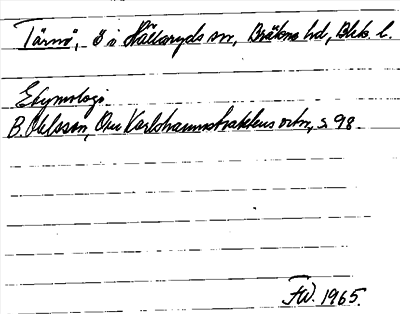 Tärnö, ö i Hällaryds sn, Bräkne hd, Blek. l.
Etymologi
B. Ohlsson, Om Karlshamnstraktens ortn, s 98.
FW. 1965.